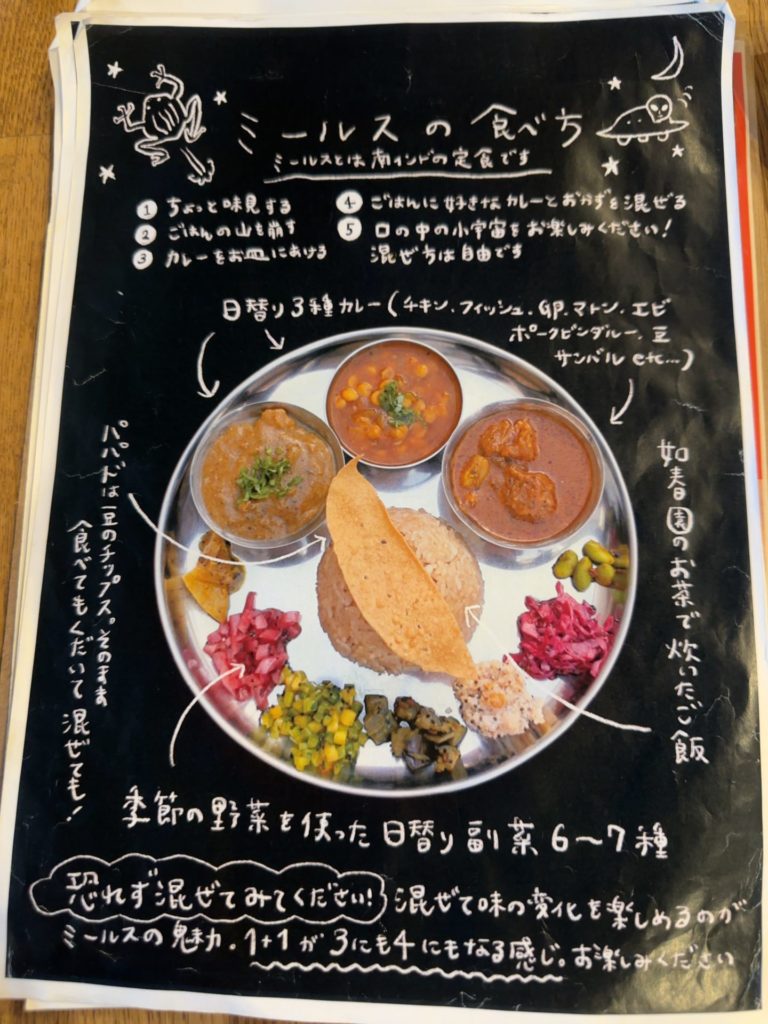 ミールスの食べち
ミールスとは南インドの定食です
① ちょっと味見する
② ごはんの山を崩す
③ カレーをお皿にあける
④ ごはんに好きなカレーとおかずを混ぜる
⑤ 口の中の小宇宙をお楽しみください!
混ぜ方は自由です
日替り3種カレー(チキン、フィッシュ、GP、マトン、エビ
ポークビンダルー、豆
サンバル etc…)
パパドは豆のチップス。そのまま
食べてもくだいて混ぜても!
如春園のお茶で炊いたご飯
季節の野菜を使った日替り副菜6〜7種
恐れず混ぜてみてください! 混ぜて味の変化を楽しめるのが
ミールスの魅力。1+1が3にも4にもなる感じ。お楽しみください